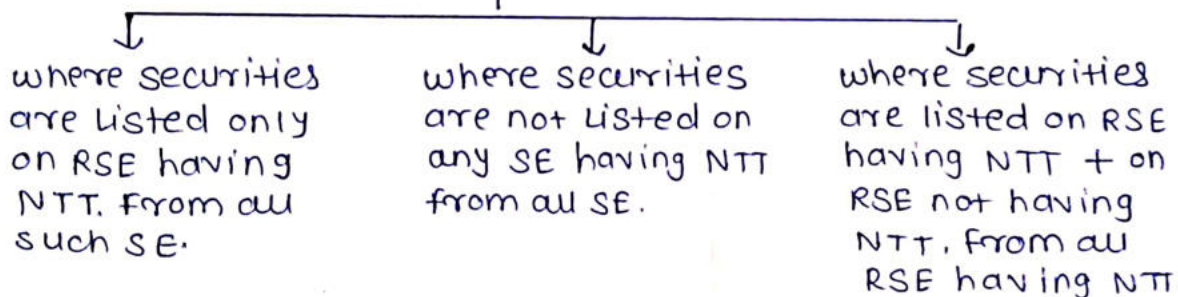 where securities
are listed only
on RSE having
NTT. From all
such SE.
where securities
are not listed on
any SE having NTT
from all SE.
where securities
are listed on RSE
having NTT + on
RSE not having
NTT. From all
RSE having NTT